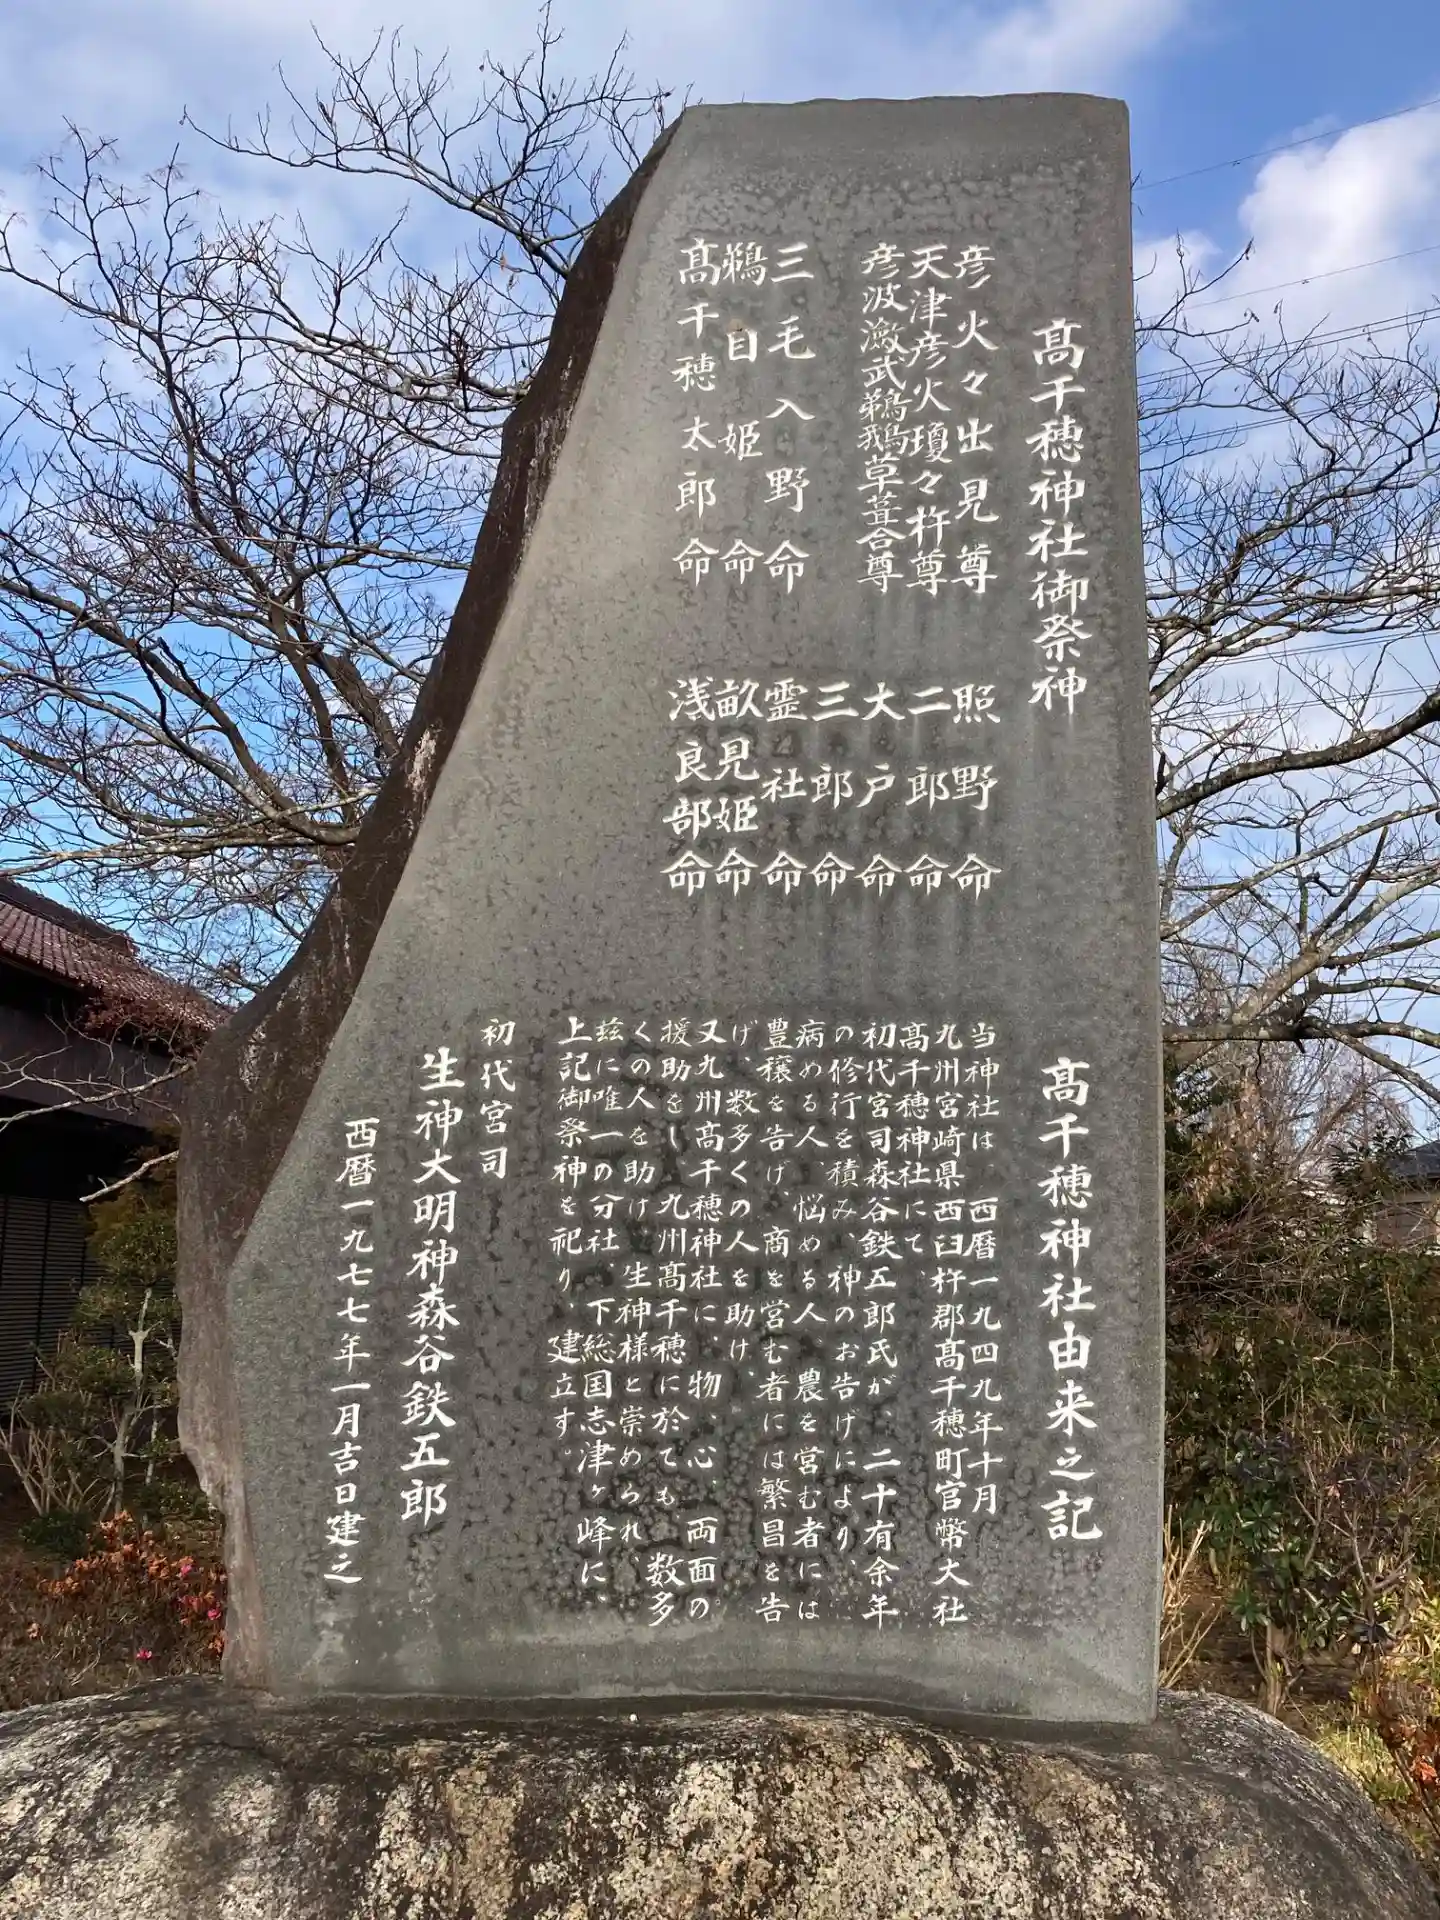 髙千穂神社御祭神
彦火々出見尊
天津彦火瓊々杵尊
彦波瀲武鵜鵝草葺合尊
三毛入野命
鵜目姫命
髙千穂太郎命
照野命
二郎命
大戸命
三郎命
霊社命
畝見姫命
浅良部命
髙千穂神社由来之記
当神社は、西暦一九四九年十月
九州宮崎県西臼杵郡髙千穂町官幣大社
髙千穂神社にて、
初代宮司森谷鉄五郎氏が、二十有余年
の修行を積み、神のお告げにより、
病める人、悩める人、農を営む者には
豊穣を告げ、商を営む者には繁昌を告
げ、数多くの人を助け、
又九州髙千穂神社に、物、心、両面の
援助をし、九州髙千穂に於ても、数多
くの人を助け、生神様と崇められ、
茲に唯一の分社、下総国志津ヶ峰に、
上記御祭神を祀り、建立す。
初代宮司
生神大明神森谷鉄五郎
西暦一九七七年一月吉日建之